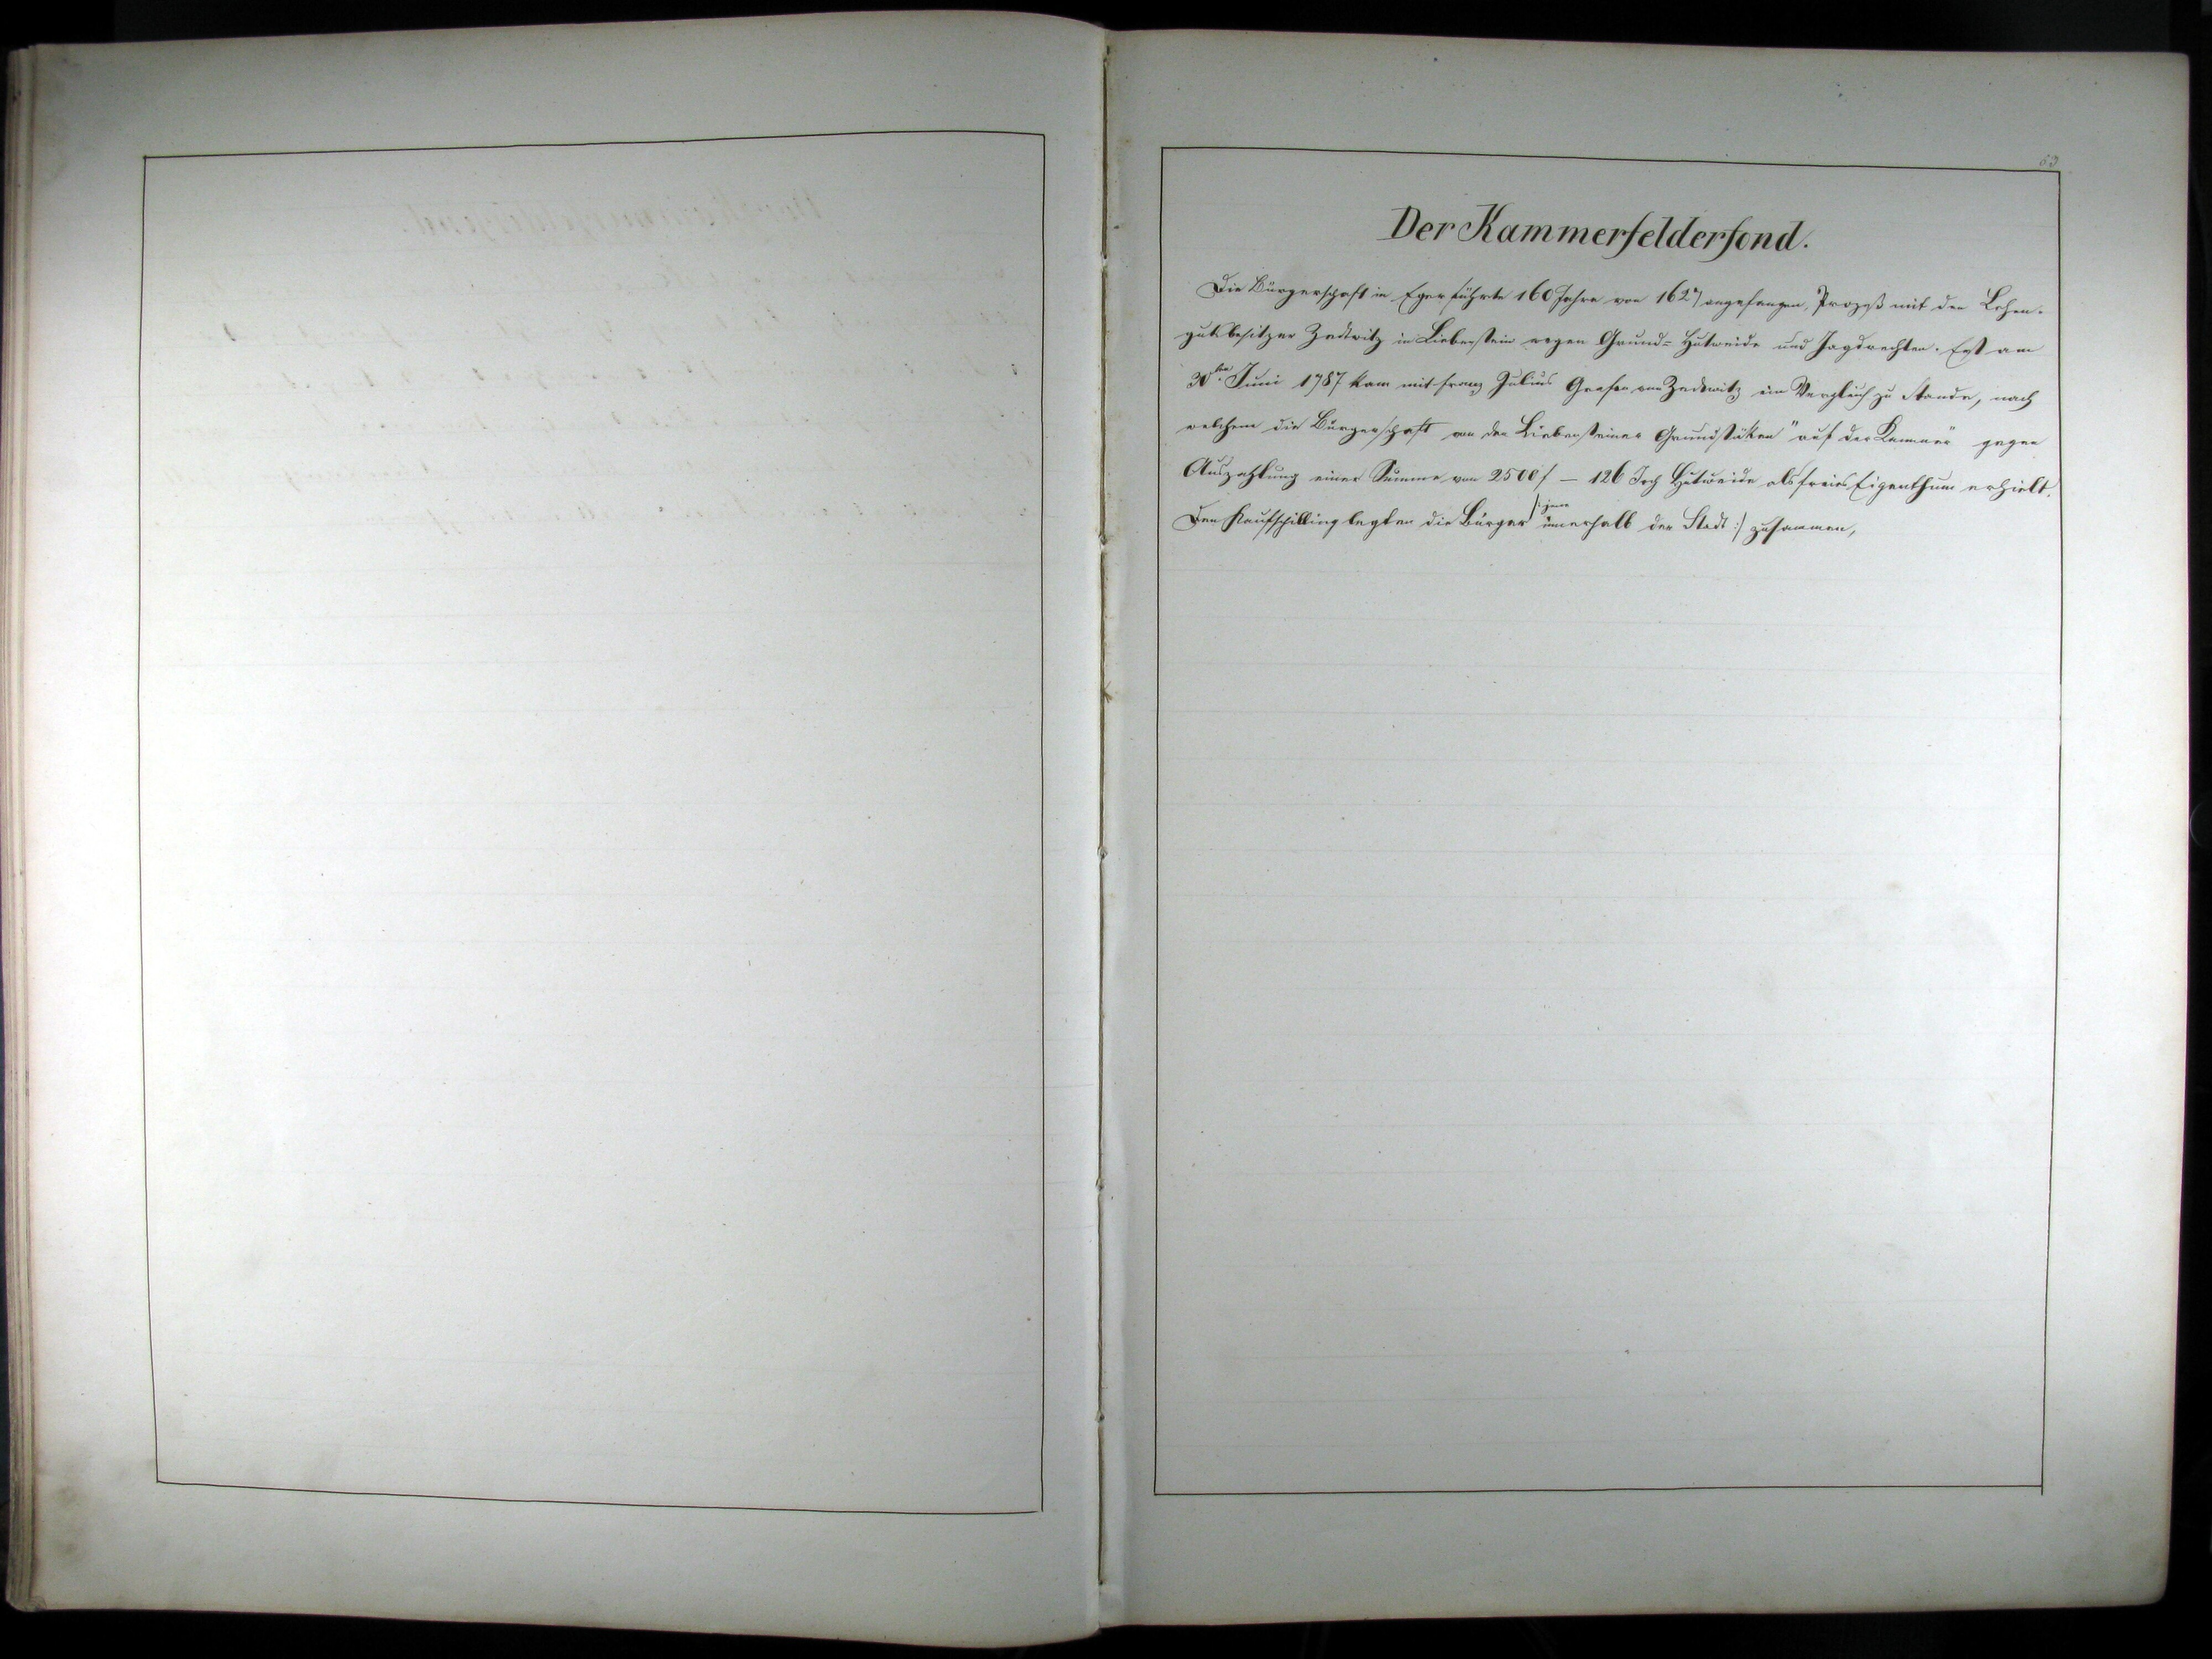 63
Der Kammerfelderfond.
Die Bürgerschaft in Eger führte 160 Jahre von 1627 angefangen, Prozeß mit den Lehen-
gutsbesitzer Zedtwitz in Liebenstein wegen Grund= Hutweide und Jagdrechten. Erst am
30ten Juni 1787 kam mit Franz Julius Grafen von Zedtwitz ein Vergleich zu Stande, nach
welchem die Bürgerschaft von den Liebensteiner Grundstüken "auf der Kammer" gegen
Auszahlung einer Summe von 2500 f — 126 Joch Hutweide als freies Eigenthum erhielt.
Den Kaufschilling legten die Bürger /: jene innerhalb der Stadt :/ zusammen,